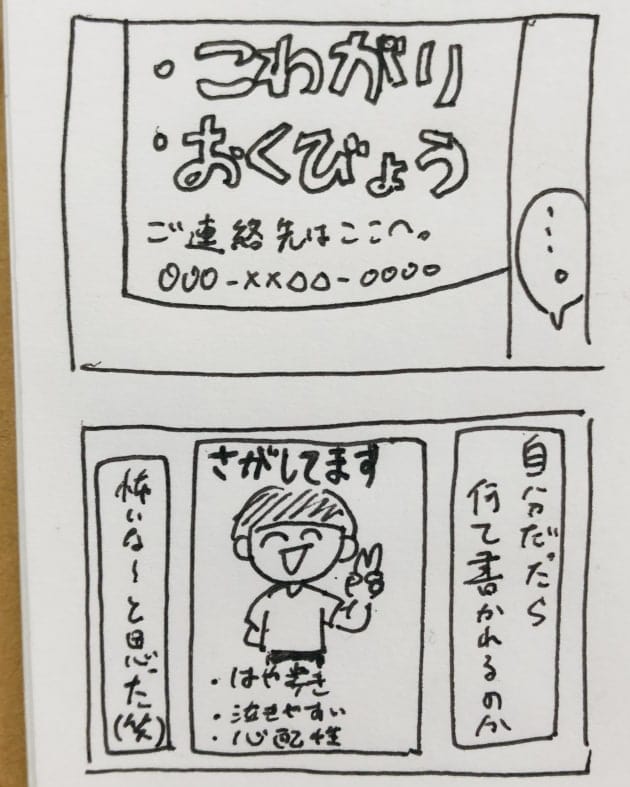 ・こわがり
・おくびょう
ご連絡先はここへ。
〇〇〇-××△△-〇〇〇〇
…。
自分だったら
何て書かれるのか
さがしてます
・はや歩き
・泣きやすい
・心配性
怖いな〜と思った(笑)